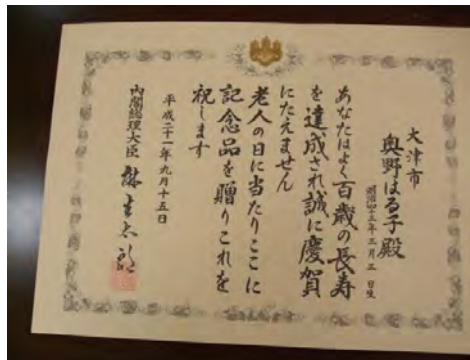 大津市
奥野はる子殿
明治四十三年三月三日生
あなたはよく百歳の長寿
を達成され誠に慶賀
にたえません
老人の日に当たりここに
記念品を贈りこれを
祝します
平成二十一年九月十五日
内閣総理大臣 麻生太郎